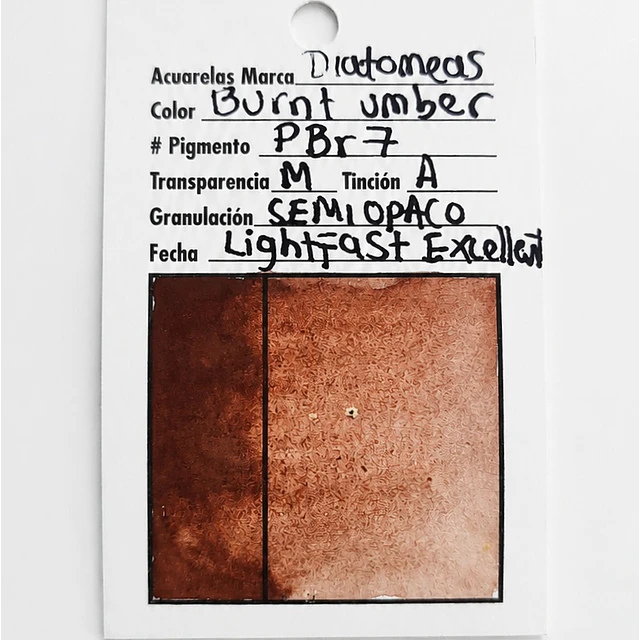 Acuarelas Marca Diatomeas
Color Burnt umber
# Pigmento PBr7
Transparencia M Tinción A
Granulación SEMIOPACO
Fecha LightFast Excellent